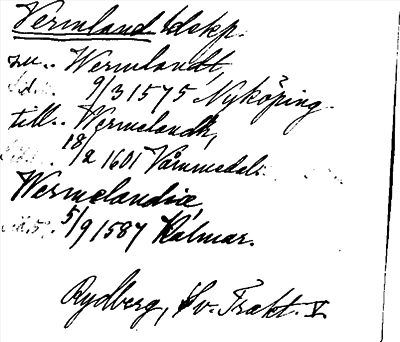 Vermland ldskp.
nu.. Wermlandt,
9/3 1575 Nyköping.
till.. Vermelandh,
18/2 1601
Wermelandiæ,
5/9 1587 Kalmar.
Rydberg, Sv. Trakt. V.